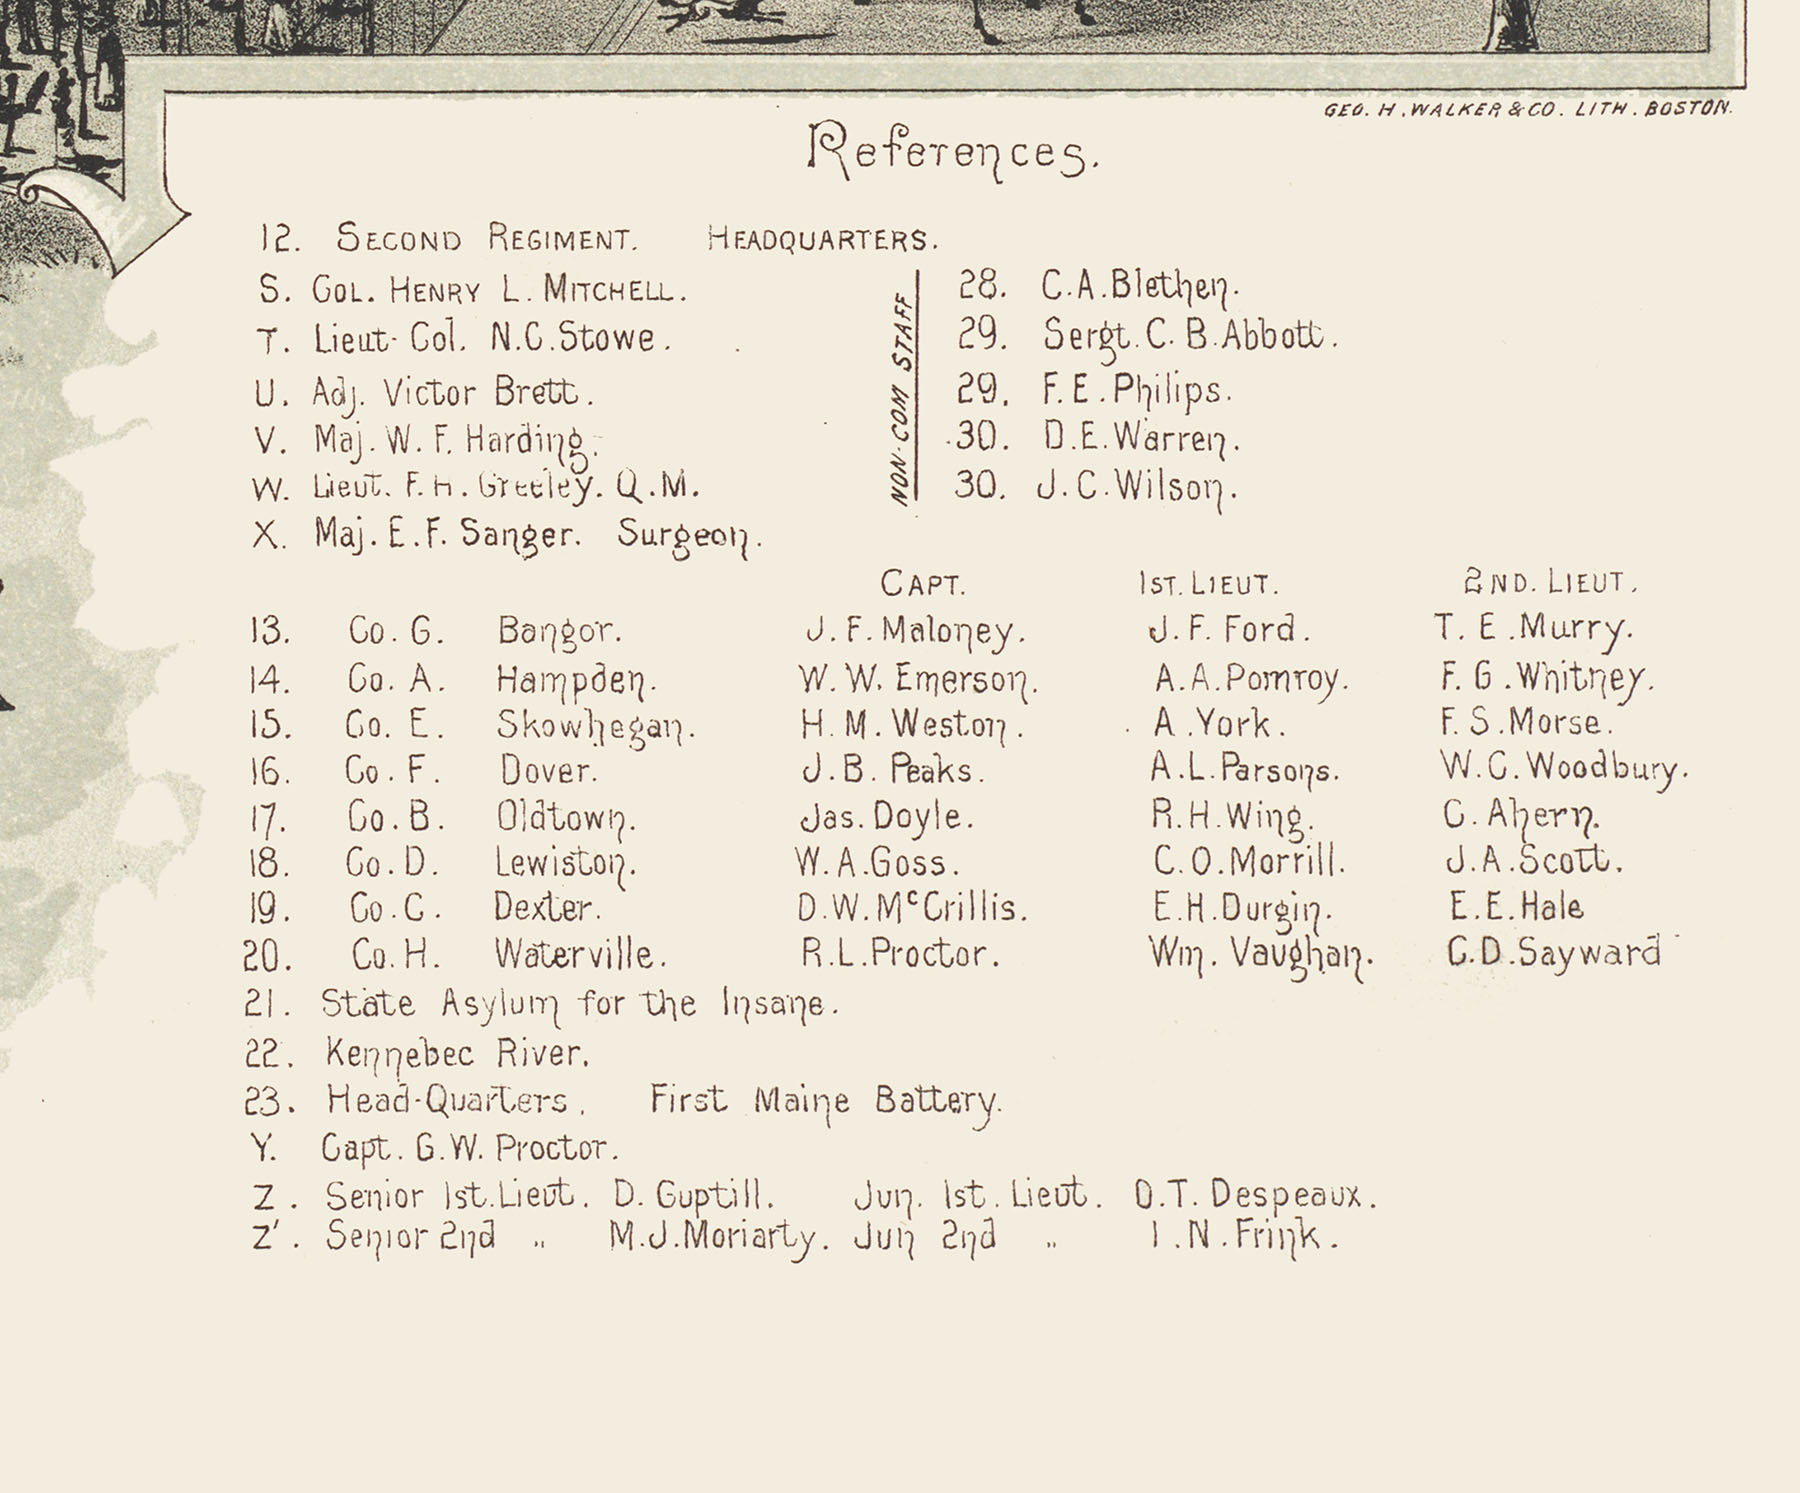 GEO. H. WALKER & CO. LITH. BOSTON.
References.
12. SECOND REGIMENT. HEADQUARTERS.
S. COL. HENRY L. MITCHELL.
T. Lieut-Col. N.C. Stowe.
U. Adj. Victor Brett.
V. Maj. W. F. Harding.
W. Lieut. F. H. Greeley. Q.M.
X. Maj. E.F. Sanger. Surgeon.
NON-COM STAFF
28. C.A. Blethen.
29. Sergt. C. B. Abbott.
29. F.E. Philips.
30. D.E. Warren.
30. J.C. Wilson.
CAPT. 1ST. LIEUT. 2ND. LIEUT.
13. Co. G. Bangor. J. F. Maloney. J. F. Ford. T. E. Murry.
14. Co. A. Hampden. W. W. Emerson. A.A. Pomroy. F. G. Whitney.
15. Co. E. Skowhegan. H. M. Weston. A. York. F. S. Morse.
16. Co. F. Dover. J. B. Peaks. A.L. Parsons. W. C. Woodbury.
17. Co. B. Oldtown. Jas. Doyle. R.H. Wing. C. Ahern.
18. Co. D. Lewiston. W. A. Goss. C. O. Morrill. J. A. Scott.
19. Co. C. Dexter. D.W. McCrillis. E.H. Durgin. E.E. Hale
20. Co. H. Waterville. R.L. Proctor. Wm. Vaughan. C.D. Sayward
21. State Asylum for the Insane.
22. Kennebec River.
23. Head-Quarters. First Maine Battery.
Y. Capt. G.W. Proctor.
Z. Senior 1st. Lieut. D. Guptill. Jun. 1st. Lieut. O.T. Despeaux.
Z'. Senior 2nd " M.J. Moriarty. Jun 2nd " I. N. Frink.